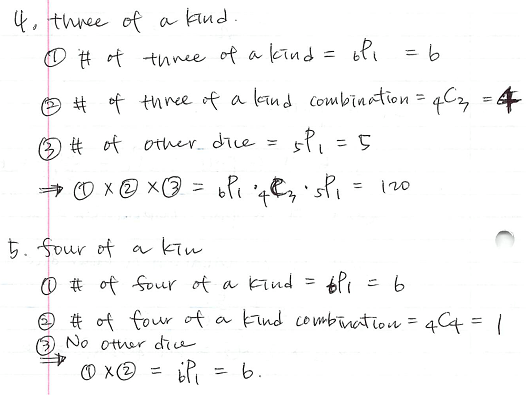 4. three of a kind.
① # of three of a kind = ₆P₁ = 6
② # of three of a kind combination = ₄C₃ = 4
③ # of other dice = ₅P₁ = 5
⇒ ① × ② × ③ = ₆P₁ · ₄C₃ · ₅P₁ = 120
5. four of a kin
① # of four of a kind = ₆P₁ = 6
② # of four of a kind combination = ₄C₄ = 1
③ No other dice
⇒ ① × ② = ₆P₁ = 6.